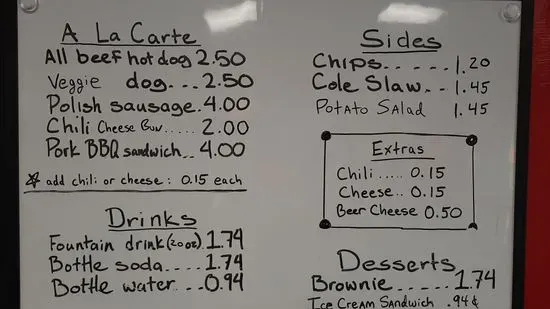 A La Carte
All beef hot dog 2.50
Veggie dog... 2.50
Polish sausage. 4.00
Chili Cheese Bun..... 2.00
Pork BBQ sandwich.. 4.00
☆ add chili or cheese: 0.15 each
Drinks
Fountain drink (20 oz) 1.74
Bottle soda.... 1.74
Bottle water.... 0.94
Sides
Chips..... 1.20
Cole Slaw.. 1.45
Potato Salad 1.45
Extras
Chili ..... 0.15
Cheese.. 0.15
Beer Cheese 0.50
Desserts
Brownie..... 1.74
Ice Cream Sandwich .94¢